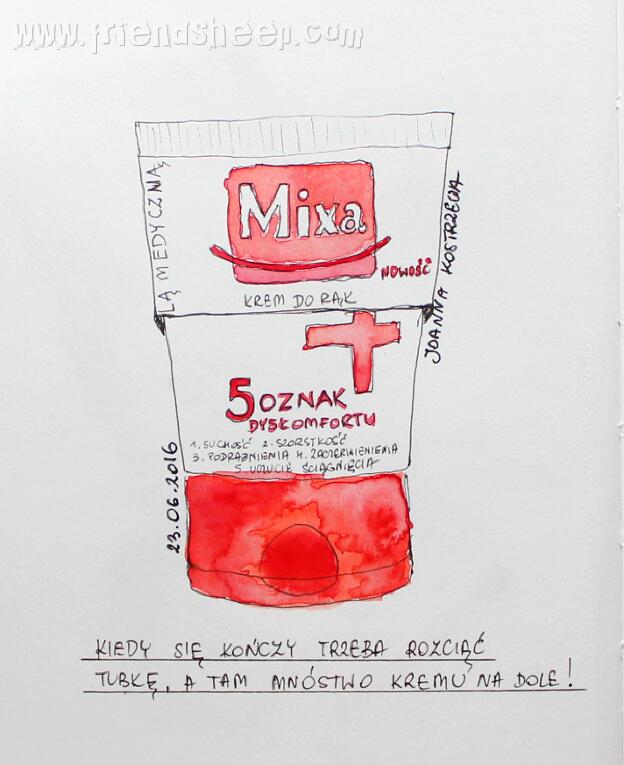 www.friendsheep.com
LĄ MEDYCZNĄ
Mixa
NOWOŚĆ
KREM DO RĄK
JOANNA KOSTRZEWA
5 OZNAK
DYSKOMFORTU
1. SUCHOŚĆ 2. SZORSTKOŚĆ
3. PODRAŻNIENIA 4. ZACZERWIENIENIA
5. UCZUCIE ŚCIĄGNIĘCIA
23.06.2016
KIEDY SIĘ KOŃCZY TRZEBA ROZCIĄĆ
TUBKĘ, A TAM MNÓSTWO KREMU NA DOLE!